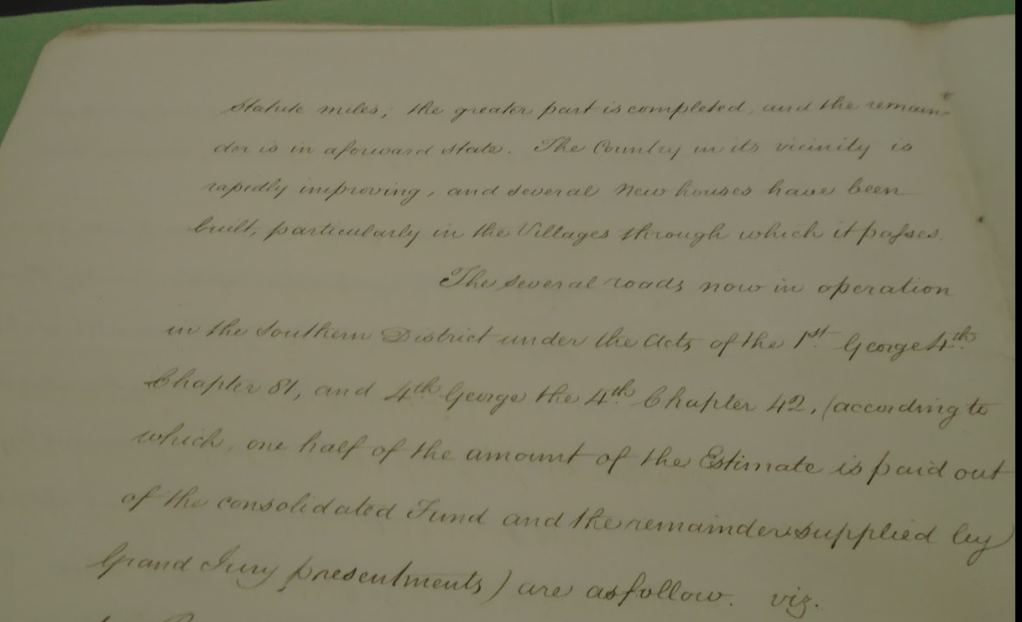 statute miles, the greater part is completed, and the remain-
der is in a forward state. The Country in its vicinity is
rapidly improving, and several new houses have been
built, particularly in the Villages through which it passes.
The several roads now in operation
in the Southern District under the Acts of the 1st. George 4th.
Chapter 81, and 4th George the 4th. Chapter 42, (according to
which, one half of the amount of the Estimate is paid out
of the consolidated Fund and the remainder supplied by
Grand Jury presentments) are as follow. viz.